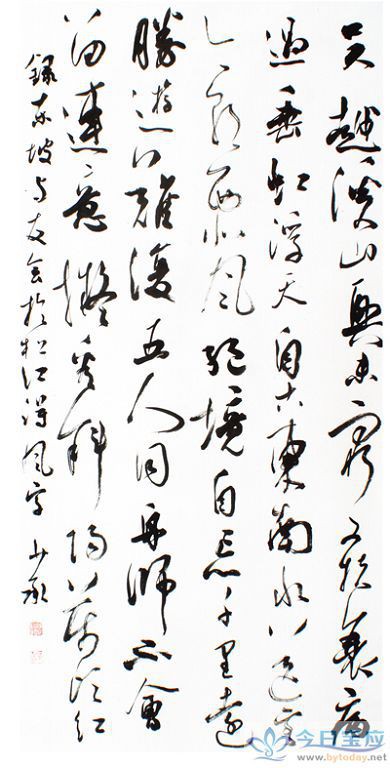 吳越溪山興未窮又扶衰病
過垂虹浮天自古東南水送客
今朝西北風絕境自忘千里遠
勝遊難復五人同舟師不會
留連意擬看斜陽萬頃紅
錄東坡与友會於松江得風字
今日宝应
www.bytoday.net